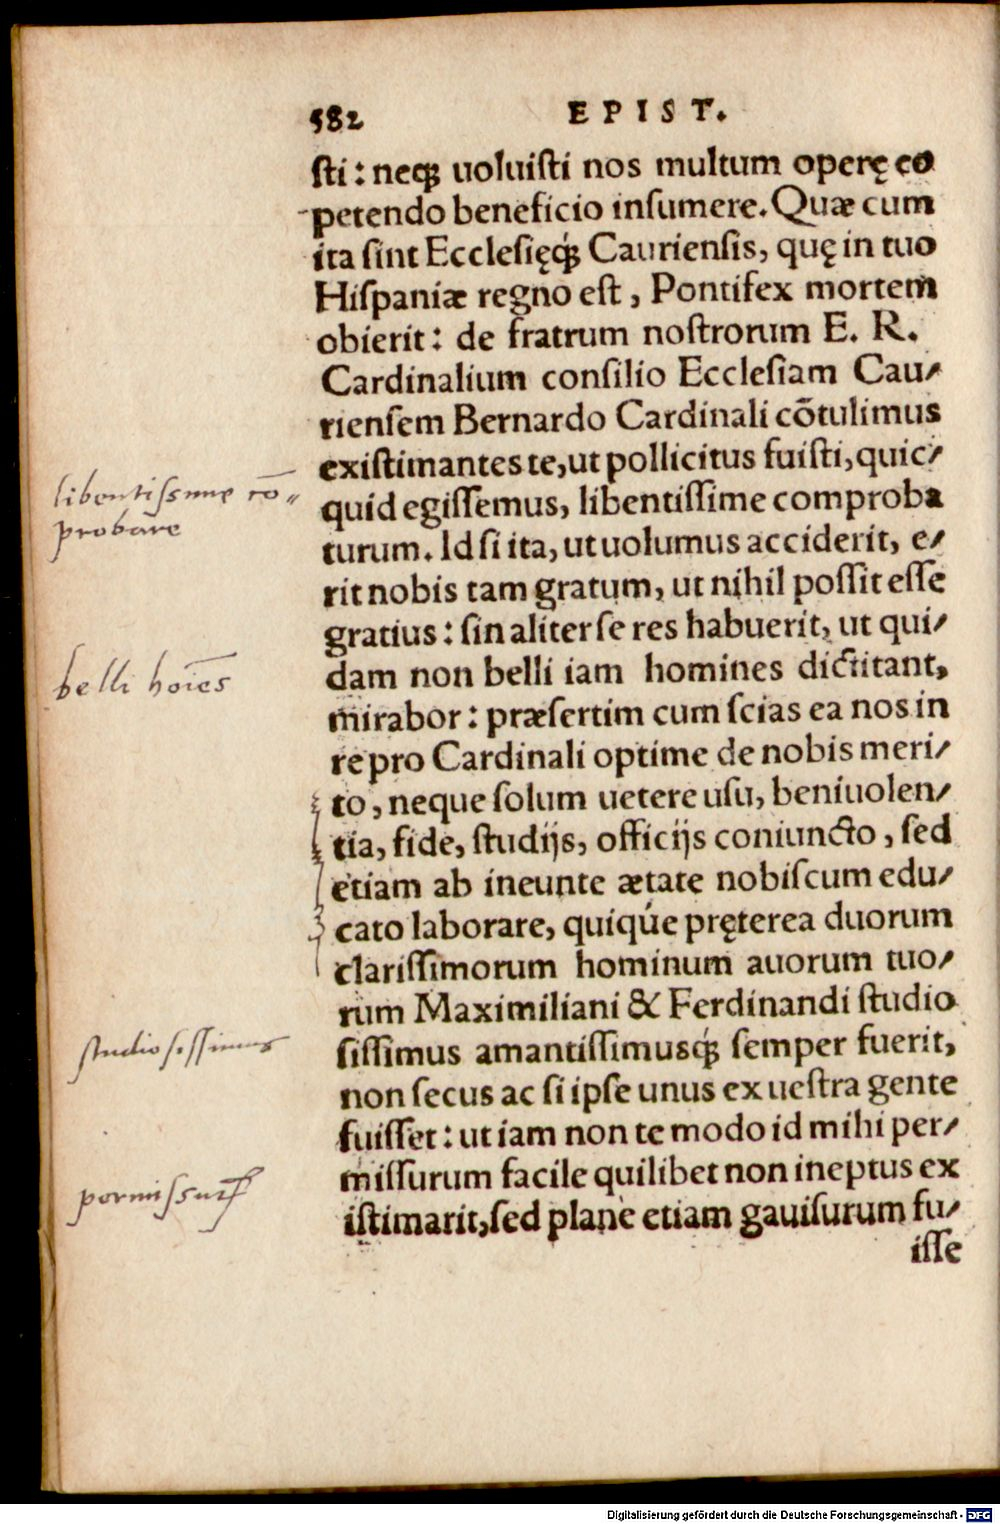 582 EPIST.
sti: neq́; uoluisti nos multum operę co
petendo beneficio insumere. Quæ cum
ita sint Ecclesięq́; Cauriensis, quę in tuo
Hispaniæ regno est, Pontifex mortem
obierit: de fratrum nostrorum E. R.
Cardinalium consilio Ecclesiam Cau/
riensem Bernardo Cardinali cõtulimus
existimantes te, ut pollicitus fuisti, quic/
quid egissemus, libentissime comproba
turum. Id si ita, ut uolumus acciderit, e/
rit nobis tam gratum, ut nihil possit esse
gratius: sin aliter se res habuerit, ut qui/
dam non belli iam homines dictitant,
mirabor: præsertim cum scias ea nos in
re pro Cardinali optime de nobis meri/
to, neque solum uetere usu, beniuolen/
tia, fide, studijs, officijs coniuncto, sed
etiam ab ineunte ætate nobiscum edu/
cato laborare, quiqúe pręterea duorum
clarissimorum hominum auorum tuo/
rum Maximiliani & Ferdinandi studio
sissimus amantissimusq́; semper fuerit,
non secus ac si ipse unus ex uestra gente
fuisset: ut iam non te modo id mihi per/
missurum facile quilibet non ineptus ex
istimarit, sed planè etiam gauisurum fu/
isse
libentissime cõ=
probare
belli hoīes
studiosissimus
permissur
Digitalisierung gefördert durch die Deutsche Forschungsgemeinschaft - DFG